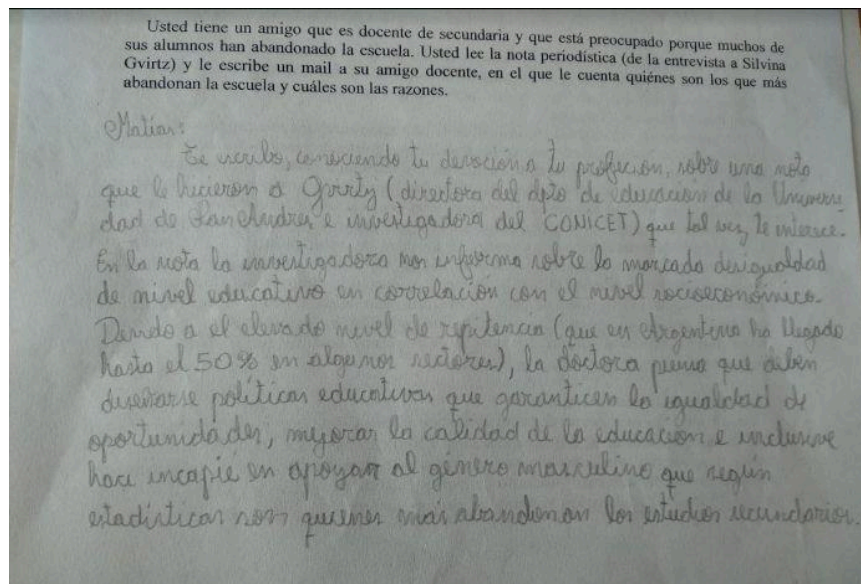 Usted tiene un amigo que es docente de secundaria y que está preocupado porque muchos de
sus alumnos han abandonado la escuela. Usted lee la nota periodística (de la entrevista a Silvina
Gvirtz) y le escribe un mail a su amigo docente, en el que le cuenta quiénes son los que más
abandonan la escuela y cuáles son las razones.
Matías:
Te escribo, conociendo tu devoción a tu profeción, sobre una nota
que le hicieron a (directora del dpto de educación de la Universi
dad de e investigadora del CONICET) que tal vez te interese.
En la nota la investigadora nos informa sobre la marcada desigualdad
de nivel educativo en correlación con el nivel socioeconómico.
a el elevado nivel de repitencia (que en Argentina ha llegado
hasta el 50% en algunos sectores), la doctora piensa que deben
diseñarse políticas educativas que garanticen la igualdad de
oportunidades, mejorar la calidad de la educación e inclusive
hace incapie en apoyar al género masculino que según
estadísticas son quienes más abandonan los estudios secundarios.